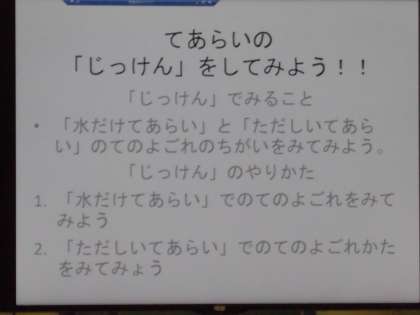 てあらいの
「じっけん」をしてみよう！！
「じっけん」でみること
• 「水だけてあらい」と「ただしいてあら
い」のてのよごれのちがいをみてみよう。
「じっけん」のやりかた
1. 「水だけてあらい」でのてのよごれをみて
みよう
2. 「ただしいてあらい」でのてのよごれかた
をみてみょう